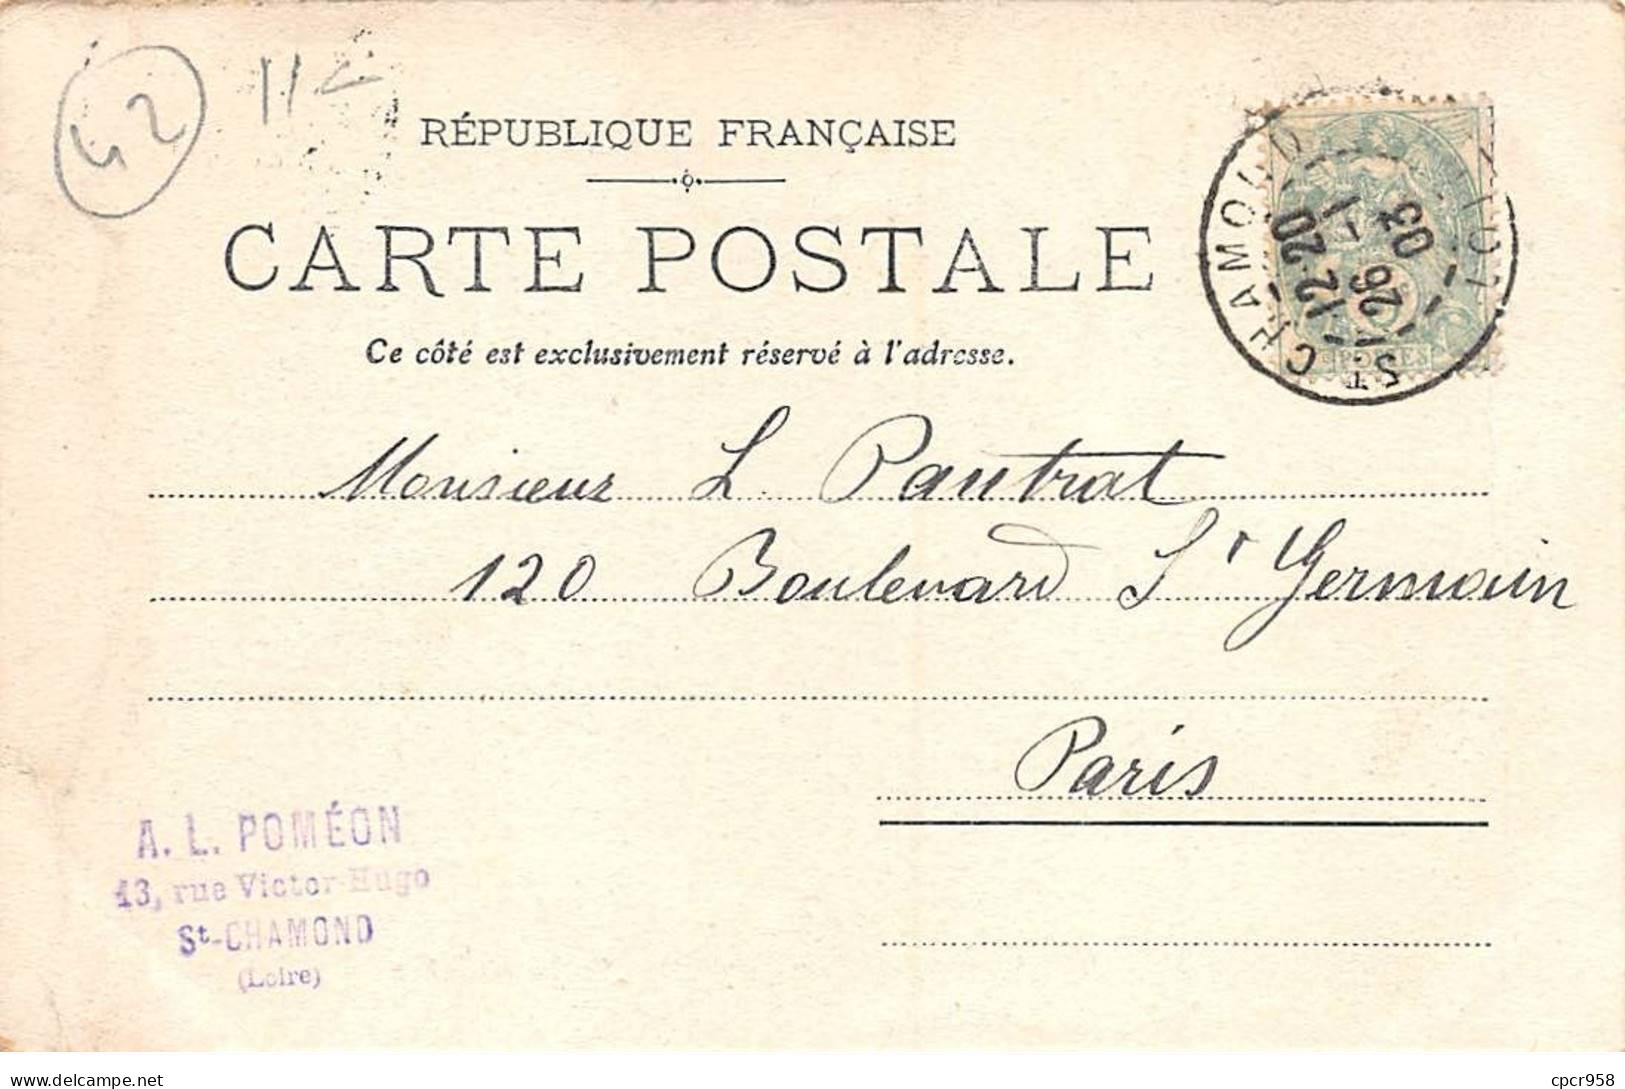 42 11
RÉPUBLIQUE FRANÇAISE
CARTE POSTALE
Ce côté est exclusivement réservé à l'adresse.
ST CHAMOND LOIRE
12 20
26 -1
03
POSTES
Monsieur L. Pautrat
120 Boulevard St Germain
Paris
A. L. POMÉON
13, rue Victor-Hugo
St-CHAMOND
(Loire)
delcampe.net
cpcr958